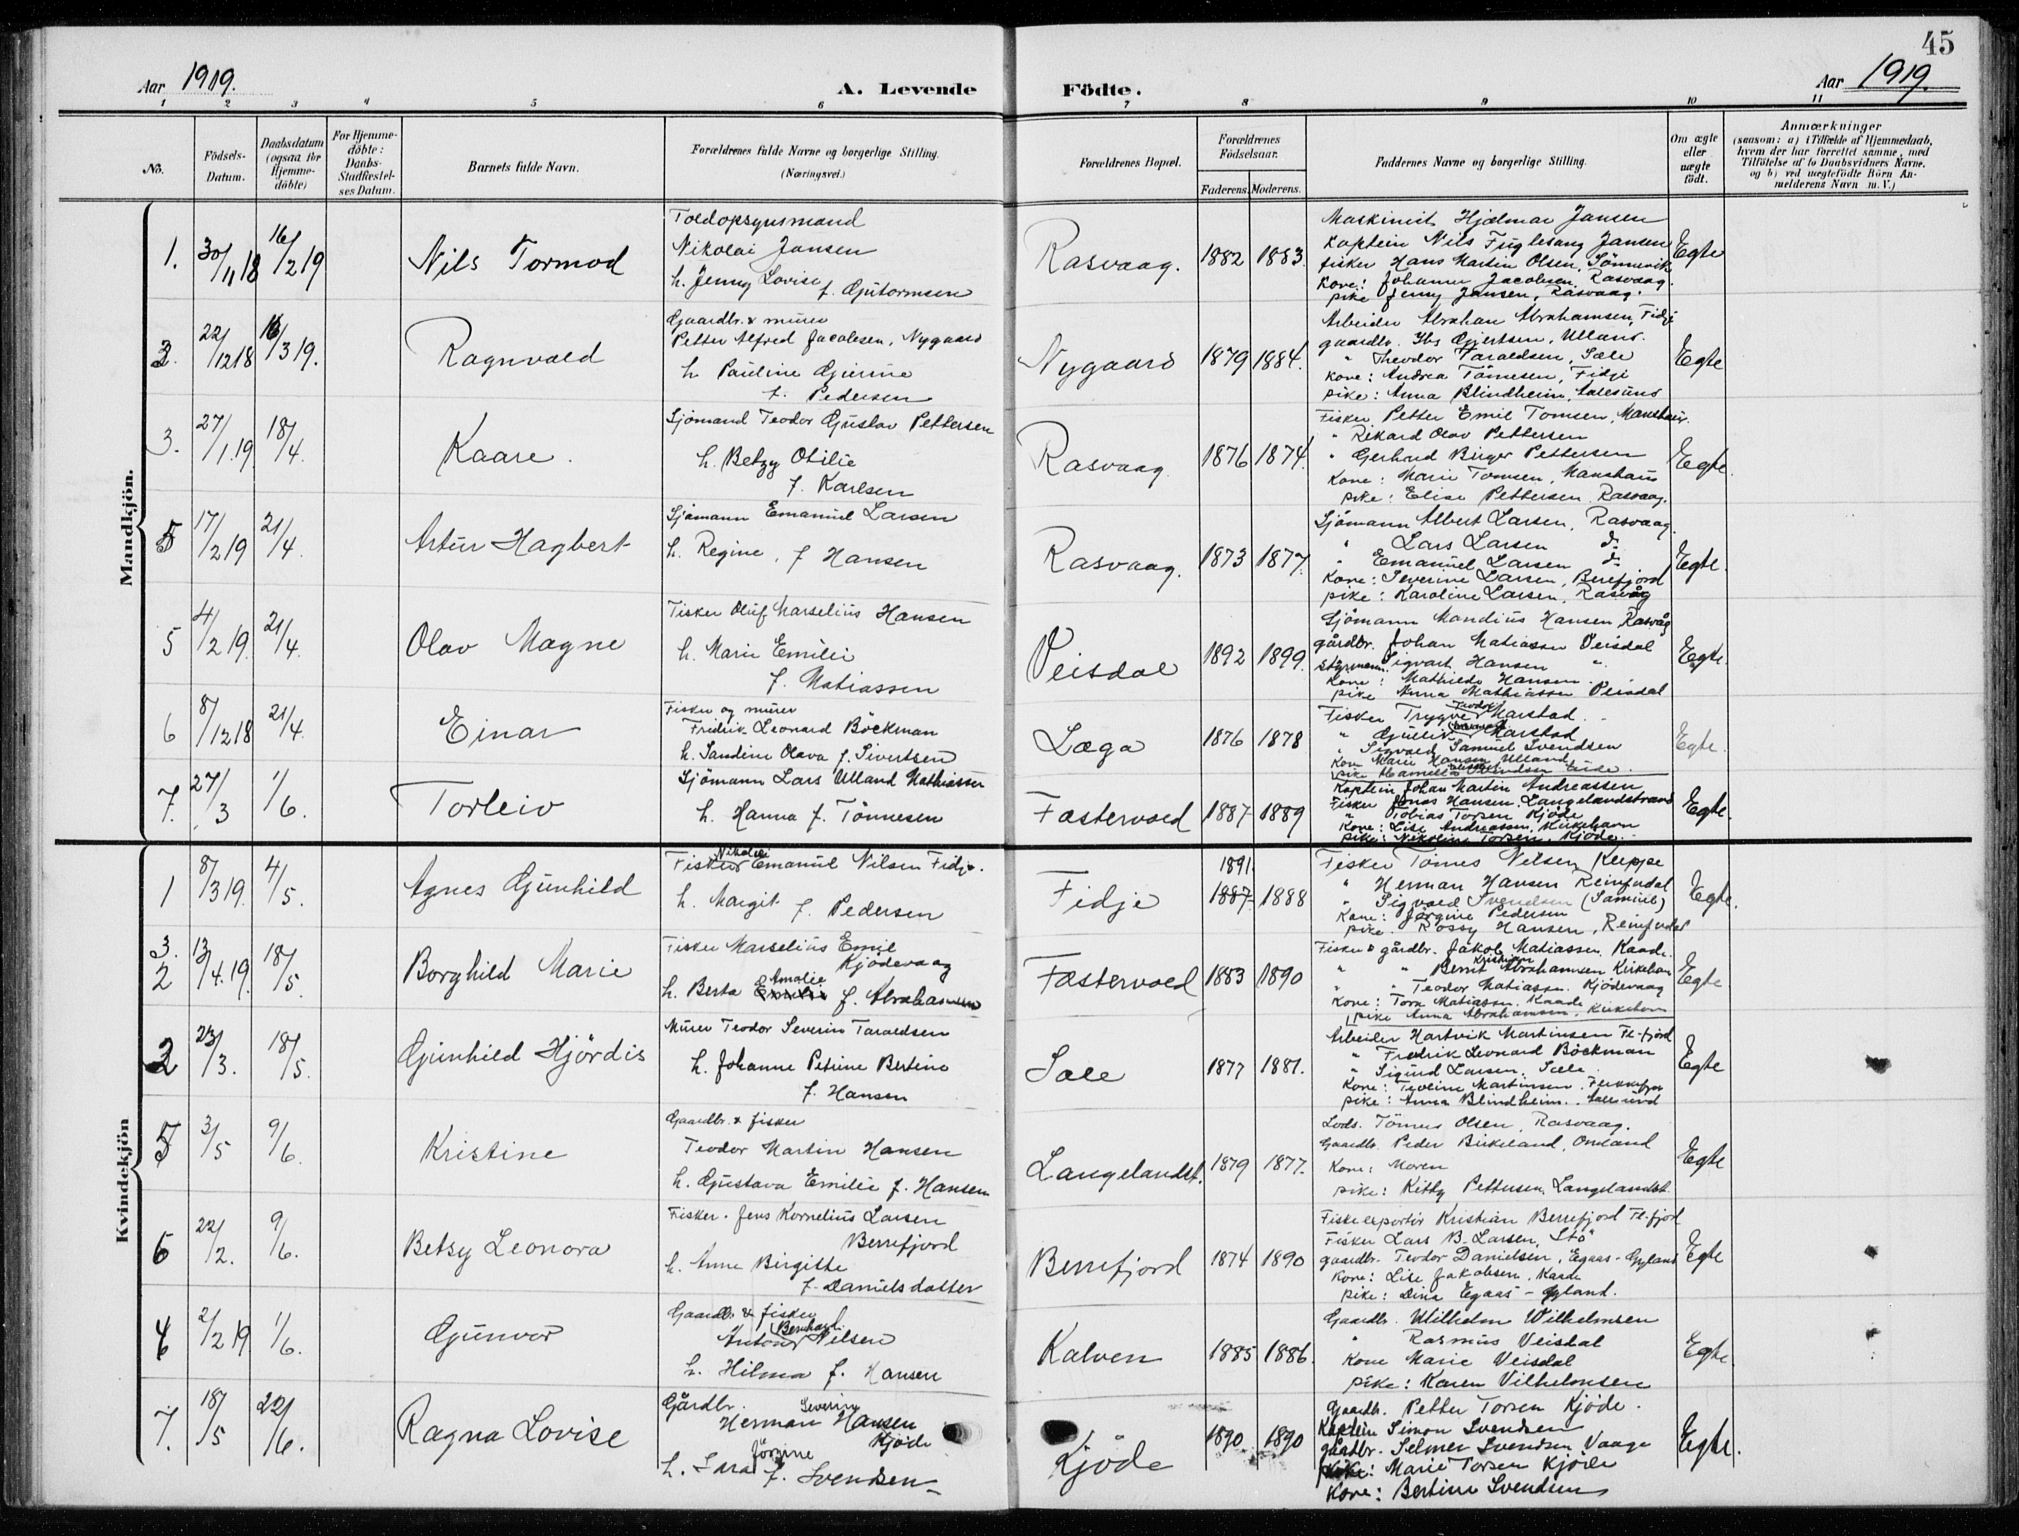 45
Aar 1919.
A. Levende Födte.
Aar 1919.
1 2 3 4 5 6 7 8 9 10 11
No.
Födsels-Datum.
Daabsdatum (ogsaa for Hjemme-döbte)
For Hjemme-döbte: Daabs-Stadfæstel-ses Datum.
Barnets fulde Navn.
Forældrenes fulde Navne og borgerlige Stilling.
(Næringsvei.)
Forældrenes Bopæl.
Forældrenes Födselsaar.
Faderens. Moderens.
Faddernes Navne og borgerlige Stilling.
Om ægte eller uægte födt.
Anmærkninger
(saasom: a) i Tilfælde af Hjemmedaab,
hvem der har forrettet samme, med
Tilföielse af to Daabsvidners Navne,
og b) ved uægtefödte Börn An-
melderens Navn m. V.)
Mandkjön.
1. 30/11 18 16/2 19 Nils Tormod
Toldopsynsmand
Nikolai Jansen
h. Jenny Lovise
f. Gutormsen
Rasvaag. 1882 1883.
Maskinist Hjalmar Jansen
Kaptein Nils Fuglesang Jansen
fisker Hans Martin Olsen, Sönnervik
Kone: Johanne Jacobsen, Rasvaag.
pike Jenny Jansen, Rasvaag.
Egte
2. 22/12 18 16/3 19. Ragnvald
Gaardbr. & murer
Petter Alfred Jacobsen, Nygaard
h. Pauline Gurine
f. Pedersen
Nygaard 1879 1884.
Arbeider Abraham Abrahamsen, Fidje
gaardbr. Gjertsen, Ulland.
" Theodor Taraldsen, Sæle
Kone: Andrea Tönnesen, Fidje
pike: Anna Blindheim, Aalesund
Egte
3. 27/1.19. 18/4. Kaare.
Sjömand Teodor Gustav Pettersen
h. Betzy Otilie
f. Karlsen
Rasvaag 1876 1874.
Fisker Petter Emil Tomsen,
" Rikard Olav Pettersen
" Gerhard Birger Pettersen
Kone: Marie Tomsen,
pike: Elise Pettersen Rasvaag.
Egte.
5 17/2 19 21/4. Artur Hagbert
Sjömann Emanuel Larsen
h. Regine, f Hansen
Rasvaag. 1873 1877.
Sjömann Albert Larsen, Rasvaag
" Lars Larsen d.
" Emanuel Larsen d.
Kone: Severine Larsen, Berefjord
pike: Karoline Larsen, Rasvåg
Egte.
5 4/2 19. 21/4. Olav Magne
Fisker Oluf Marselius Hansen
h. Marie Emilie
f. Matiassen
Veisdal 1892 1899.
Sjömann Mandius Hansen Rasvåg
gårdbr. Johan Matiassen Veisdal
Styrmann Sigvart Hansen "
Kone: Mathilde Hansen.
pike Anna Mathiassen Veisdal
Egte.
6 8/12 18 21/4. Einar
Fisker og murer
Fridrik Leonard Böckman
h. Sandine Olava f. Sivertsen
Læga 1876 1878
Fisker Trygve Teodor Marstad.
" Marstad
" Sigvald Samuel Svendsen
Kone Marie Hansen Ulland
Egte.
7. 27/3 1/6. Torleiv
Sjömann Lars Ulland Mathiassen
h. Hanna f. Tönnesen
Fastervold 1887 1889
Kaptein Johan Martin Andreassen
Fisker Jonas Hansen Langelandstrand
" Tobias Torsen Kjöde
Kone: Lise Andreassen, Kirkehavn
pike: Nikoline Torsen, Kjöde.
Egte.
Kvindekjön
1 8/3 19. 4/5. Agnes Gunhild
Fisker Nikolai Emanuel Nilsen Fidje.
h. Margit f. Pedersen
Fidje 1891. 1887 1888
Fisker Tönnes Nilsen, Keippe
" Herman Hansen Reinfudal
" Sigvald Svendsen (Samuel)
Kone: Jörgine Pedersen
pike. Rossy Hansen, Reinfudal
Egte.
3. 2 13/4.19. 18/5. Borghild Marie
Fisker Marselius Emil
Kjödevaag
h. Berta Amalie f. Abrahamsen
Fastervold 1883 1890
Fisker & gårdbr. Jakob Matiassen, Kaade.
" " Bernt Kristian Abrahamsen Kirkehavn
" " Teodor Matiassen. Kjödevaag
Kone: Tora Matiassen. Kaade
pike Anna Abrahamsen, Kirkehavn
Egte
2 23/3. 18/5. Gunhild Hjördis
Murer Teodor Severin Taraldsen
h. Johanne Petrine Bertine
f. Hansen
Sæle 1877 1881.
Arbeider Hartvik Martinsen Fl-fjord
" Fredrik Leonard Böckman
" Sigurd Larsen. Sæle.
Kone: Teoline Martinsen. Flekkefjor
pike: Anna Blindheim. Aalesund
Egte
5 3/5 9/6. Kristine
Gaardbr. & fisker
Teodor Martin Hansen
h. Gustava Emilie f. Hansen
Langelandst. 1879 1877.
Lods. Tönnes Olsen, Rasvaag.
Gaardbr. Peder Birkeland, Omland
Kone: Maren
pike: Kitty Pettersen, Langelandst.
Egte
6 22/2. 9/6. Betsy Leonora
Fisker. Jens Kornelius Larsen
Berrefjord
h. Anne Birgitte
f. Danielsdatter
Berrefjord 1874 1890
Fiskeexportör Kristian Berrefjord Fl.fjord
Fisker Lars B. Larsen, Stö
gaardbr. Teodor Danielsen, Egaas-Gyland
Kone: Lise Jakobsen, Kaade
pike: Dina Egaas - Gyland.
Egte
4 2/2 19 1/6. Gunvor
Gaardbr. & fisker
Anton Bernhard Nilsen
h. Hilma f. Hansen
Kalven 1885 1886.
Gaardbr. Wilhelm Wilhelmsen
" Rasmus Veisdal
Kone Marie Veisdal
pike: Karen Vilhelmsen
Egte.
7. 18/5 22/6. Ragna Lovise
Gårdbr.
Herman Severin Hansen
Kjöde
h. Sara Jörgine f. Svendsen
Kjöde 1890 1890
Gaardbr. Petter Torsen Kjöde.
Kaptein Simon Svendsen
gårdbr. Selmer Svendsen, Vaage
pike: Marie Torsen Kjöde
Kone: Bertine Svendsen
Egte.